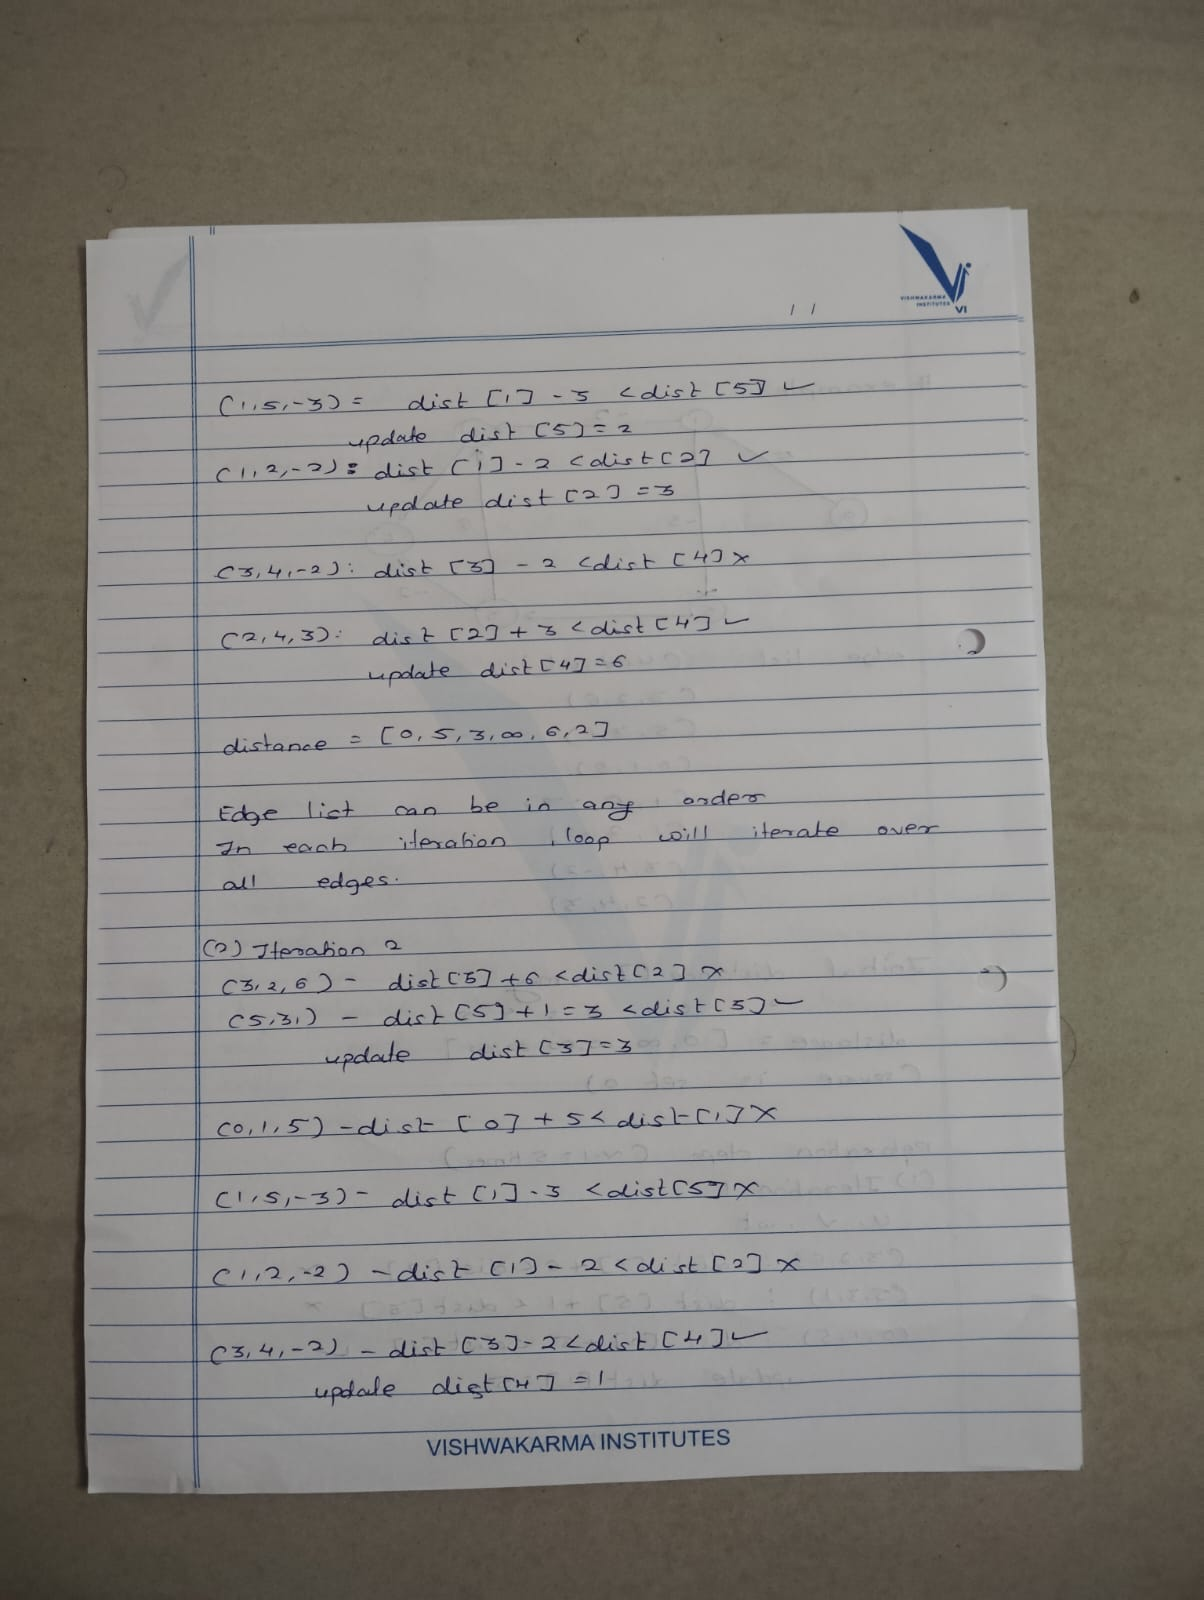 VISHWAKARMA
INSTITUTES
VI
/ /
(1,5,-3) = dist [1] - 3 < dist [5] ✓
update dist [5] = 2
(1,2,-2): dist [1] - 2 < dist [2] ✓
update dist [2] = 3
(3,4,-2): dist [3] - 2 < dist [4] x
(2,4,3): dist [2] + 3 < dist [4] ✓
update dist [4] = 6
distance = [0, 5, 3, ∞, 6, 2]
Edge list can be in any order
In each iteration, loop will iterate over
all edges.
(2) Iteration 2
(3,2,6) - dist [3] + 6 < dist [2] x
(5,3,1) - dist [5] + 1 = 3 < dist [3] ✓
update dist [3] = 3
(0,1,5) - dist [0] + 5 < dist [1] x
(1,5,-3) - dist [1] - 3 < dist [5] x
(1,2,-2) - dist [1] - 2 < dist [2] x
(3,4,-2) - dist [3] - 2 < dist [4] ✓
update dist [4] = 1
VISHWAKARMA INSTITUTES